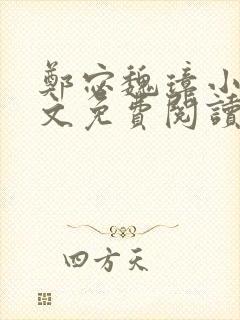 鄭宓魏璋小
文免費閱讀
四方天